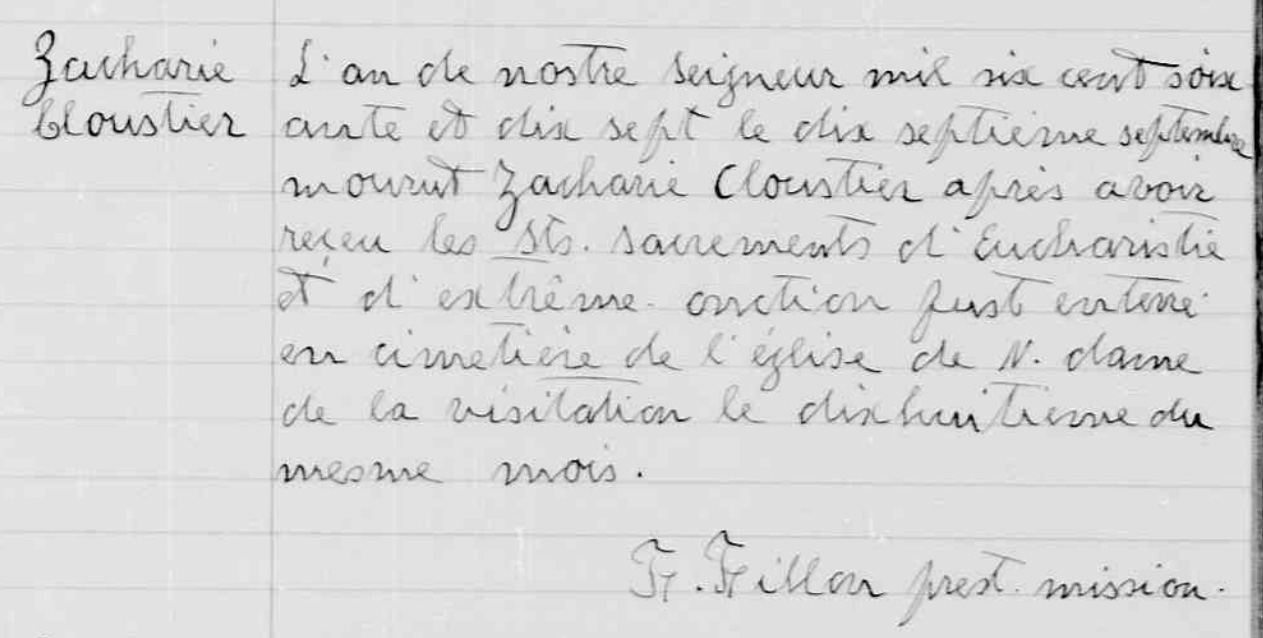 Zacharie
Cloustier
L'an de nostre seigneur mil six cent soix
ante et dix sept le dix septieme septembre
mourut Zacharie Cloustier après avoir
reçeu les Sts. Sacrements d'Eucharistie
et d'extrême onction fust enterré
en cimetière de l'église de N. dame
de la visitation le dixhuitieme du
mesme mois.
Fr. Fillon prest. mission.